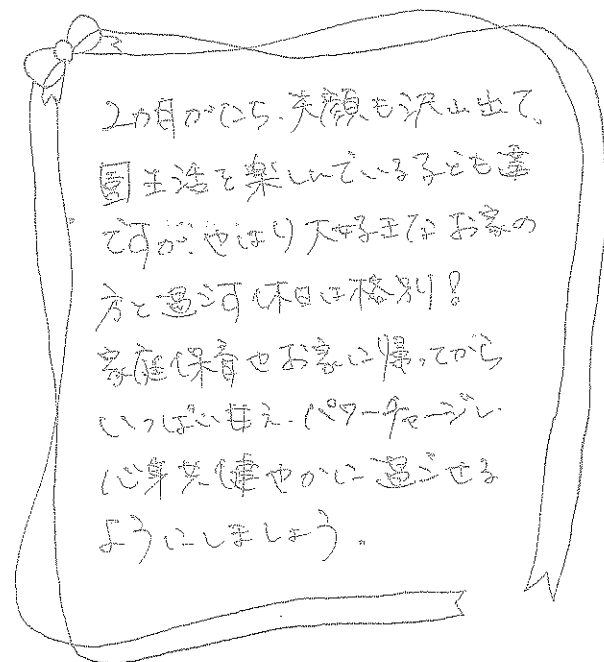 2カ月がたち、笑顔も沢山出て、
園生活を楽しんでいる子ども達
ですが、やはり大好きなお家の
方と過ごす休日は格別!
家庭保育やお家に帰ってから
いっぱい甘え、パワーチャージし、
心身共健やかに過ごせる
ようにしましょう。